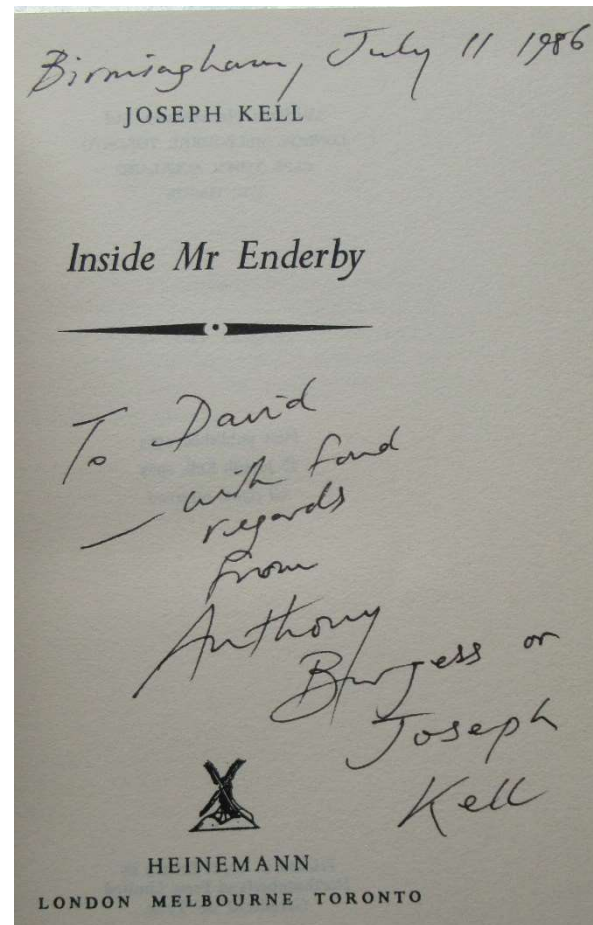 Birmingham, July 11 1986
JOSEPH KELL
Inside Mr Enderby
To David
— with fond
regards
from
Anthony
Burgess or
Joseph
Kell
HEINEMANN
LONDON MELBOURNE TORONTO